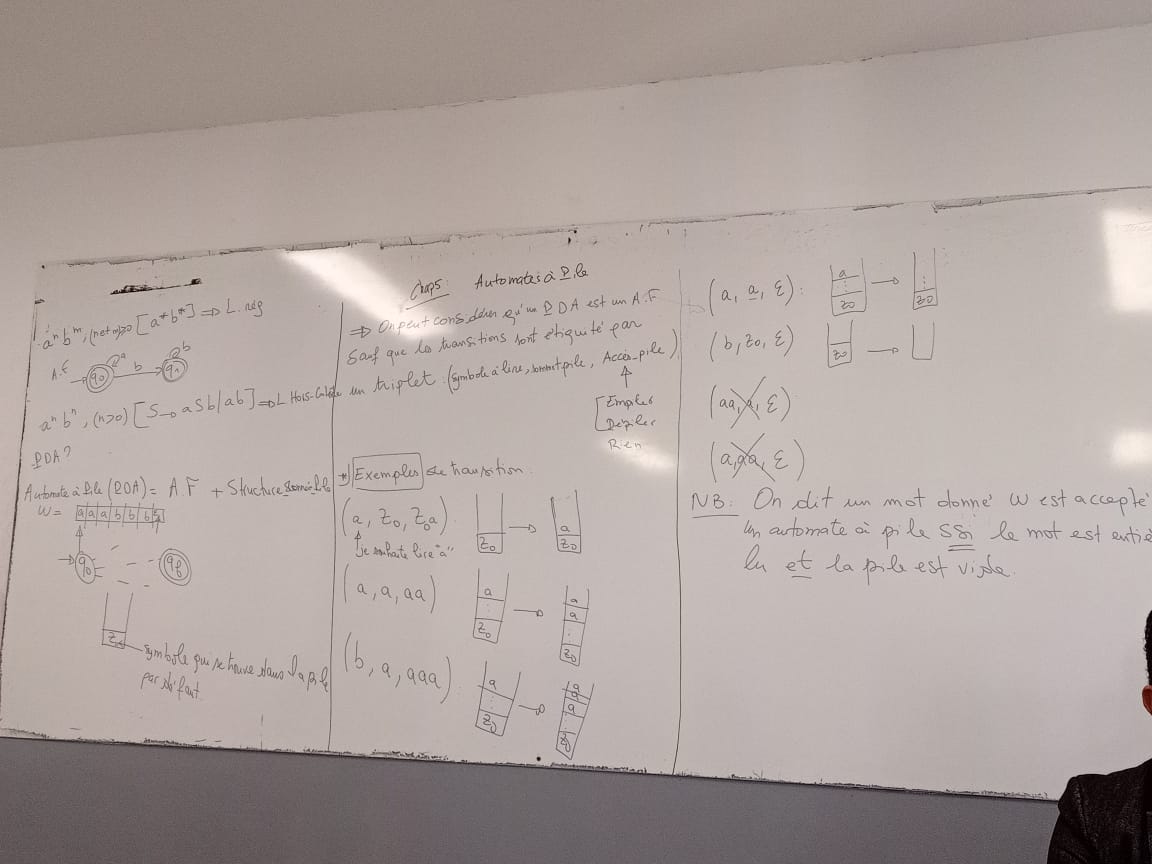 Chap5: Automates à Pile
a^n b^m, (n et m)≥0 [a*b*] ⇒ L. rég
A.F
q0 a b q1 b
a^n b^n, (n>0) [S → aSb/ab] ⇒ L Hors-
PDA?
Automate à Pile (PDA) = A.F + Structure
W = a a a b b b
q0 qf
Z0
symbole qui se trouve dans la pile
par défaut
⇒ On peut considérer qu'un PDA est un A.F
Sauf que les transitions sont étiquité par
un triplet: (symbole à lire, sommet pile, Accès-pile)
Empiler
Dépiler
Rien
*) Exemples de transition:
(a, Z0, Z0a)
je souhaite lire "a"
Z0 → a Z0
(a, a, aa)
a Z0 → a a Z0
(b, a, aaa)
a Z0 → a a a Z0
(a, a, ε): a Z0 → Z0
(b, Z0, ε) Z0 →
(aa, a, ε)
(a, aa, ε)
NB: On dit un mot donné W est accepté
un automate à pile SSi le mot est
lu et la pile est vide.